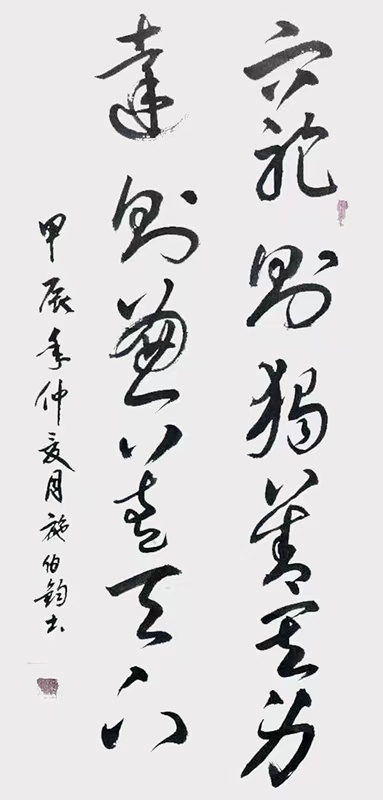 窮則獨善其身
達則兼善天下
甲辰年仲夏月施伯鈞书